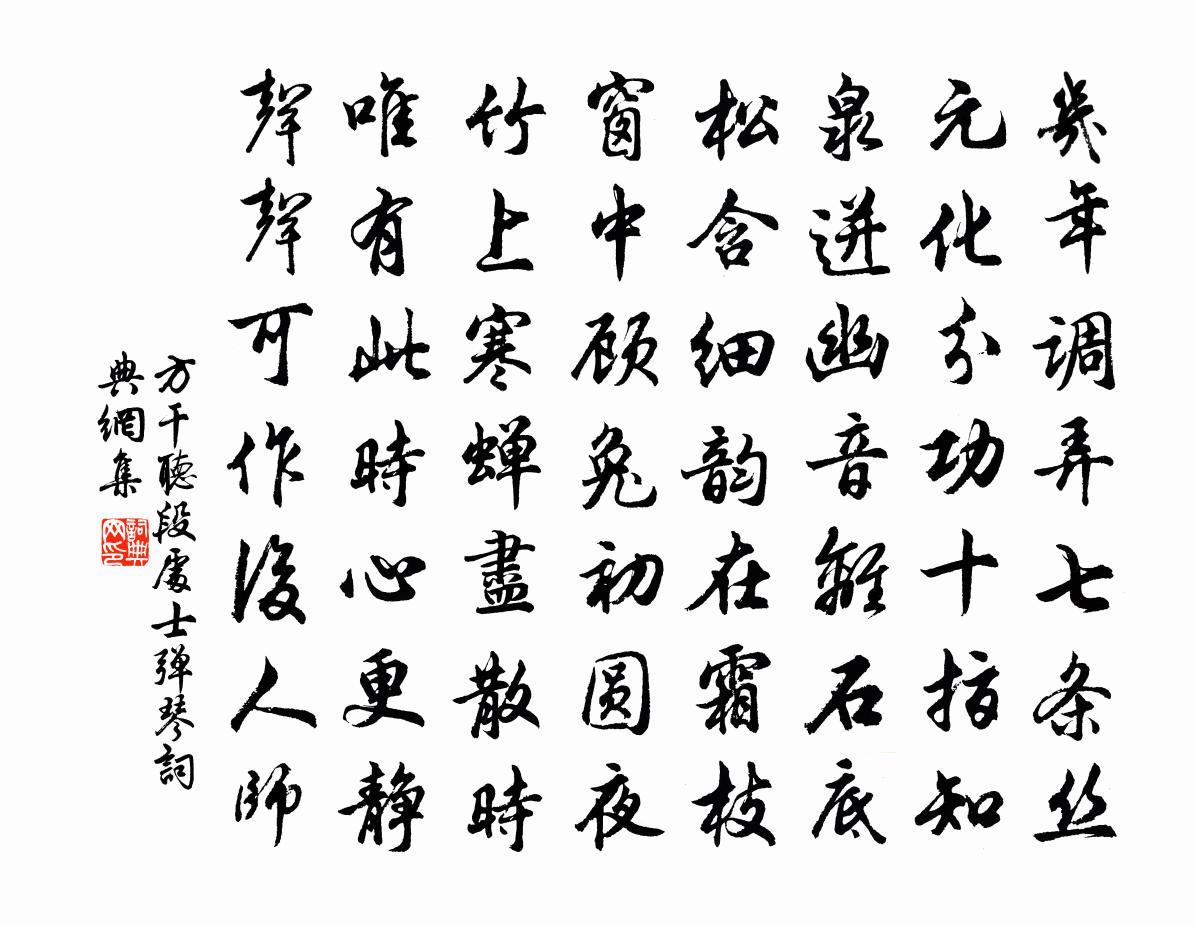 幾年調弄七条丝
元化分功十指知
泉迸幽音離石底
松含细韵在霜枝
窗中顾兔初圆夜
竹上寒蝉盡散時
唯有此時心更静
聲聲可作後人師
方干聽段處士弹琴詞
典網集
詞典网印